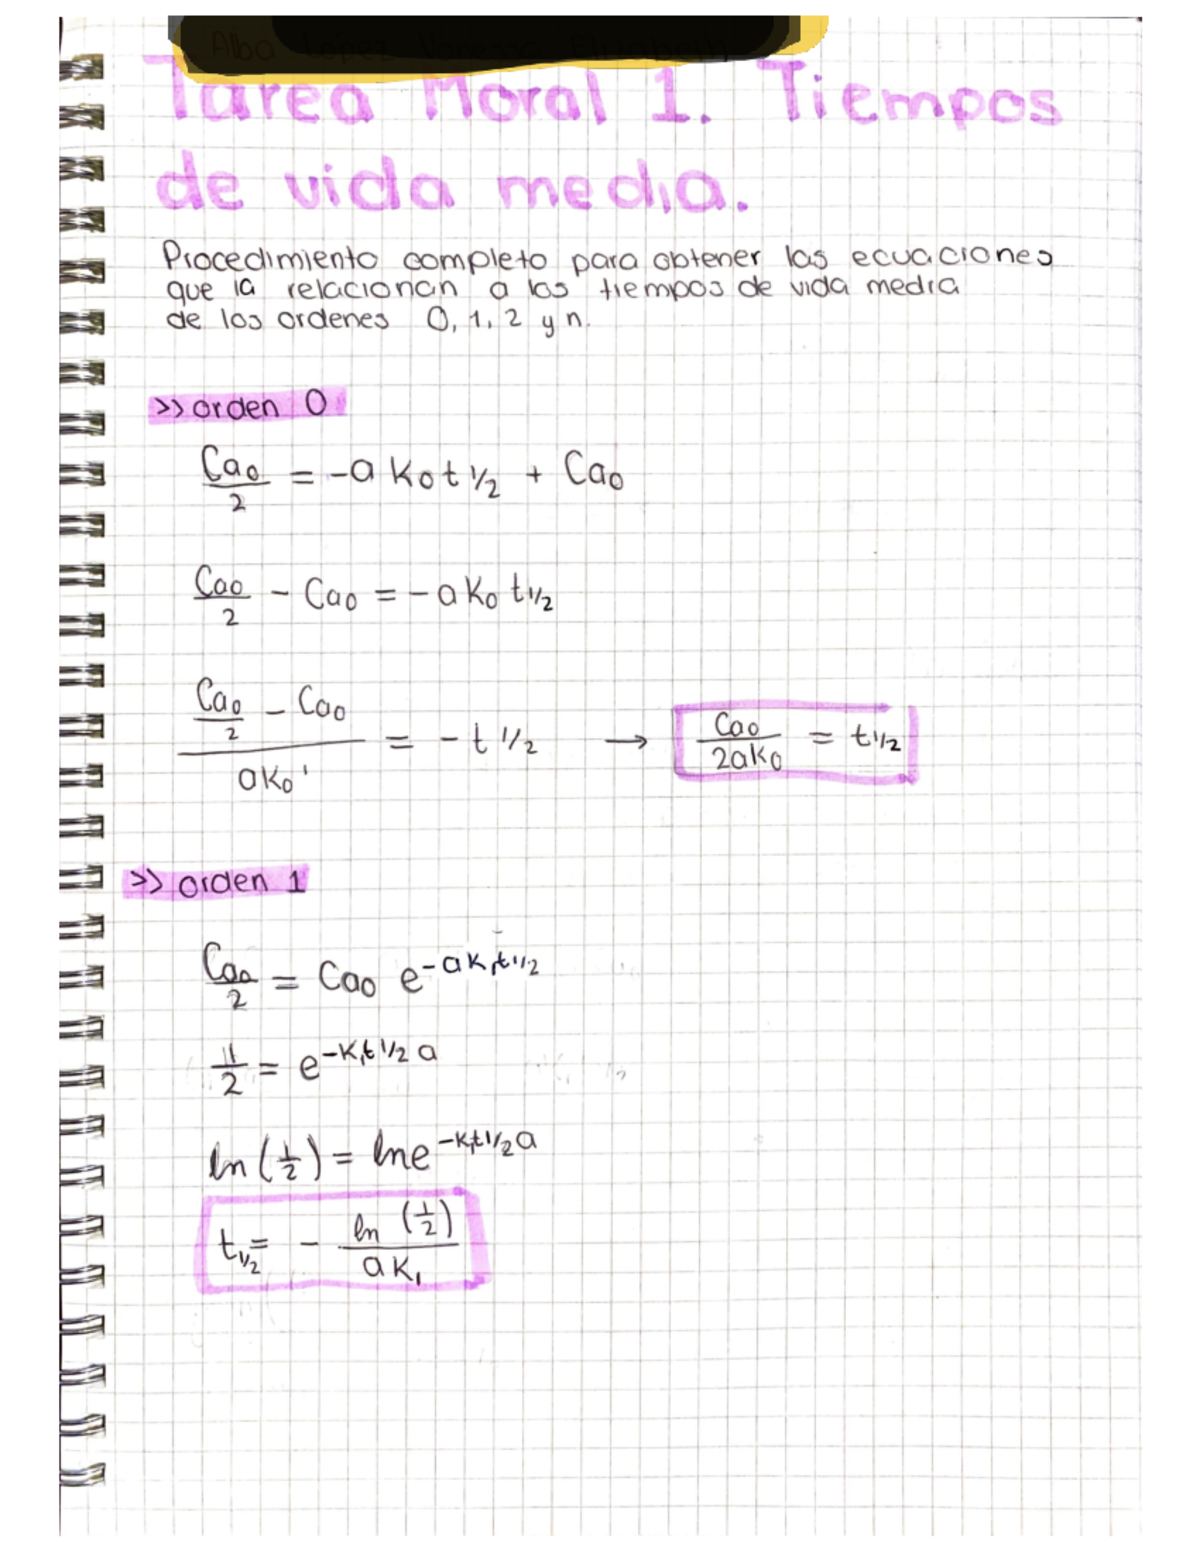 Tarea Moral 1. Tiempos
de vida media.
Procedimiento completo para obtener las ecuaciones
que la relacionan a los tiempos de vida media
de los ordenes 0, 1, 2 y n.
>> orden 0
Ca₀/2 = -a k₀ t ½ + Ca₀
Ca₀/2 - Ca₀ = - a k₀ t½
(Ca₀/2 - Ca₀)/ak₀ = - t ½ → Ca₀/2ak₀ = t½
>> orden 1
Ca₀/2 = Ca₀ e^-ak₁t½
1/2 = e^-k₁t½ a
ln (1/2) = lne^-k₁t½ a
t½ = - ln (1/2)/ak₁